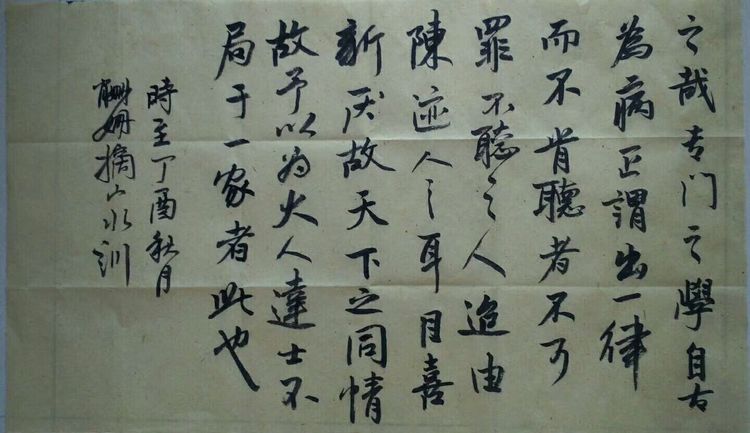 之哉专门之學自古
為病正謂出一律
而不肯聽者不可
罪不聽之人迨由
陳迹人之耳目喜
新厌故天下之同情
故予以为大人達士不
局于一家者此也
時至丁酉秋月
姗摘山水訓